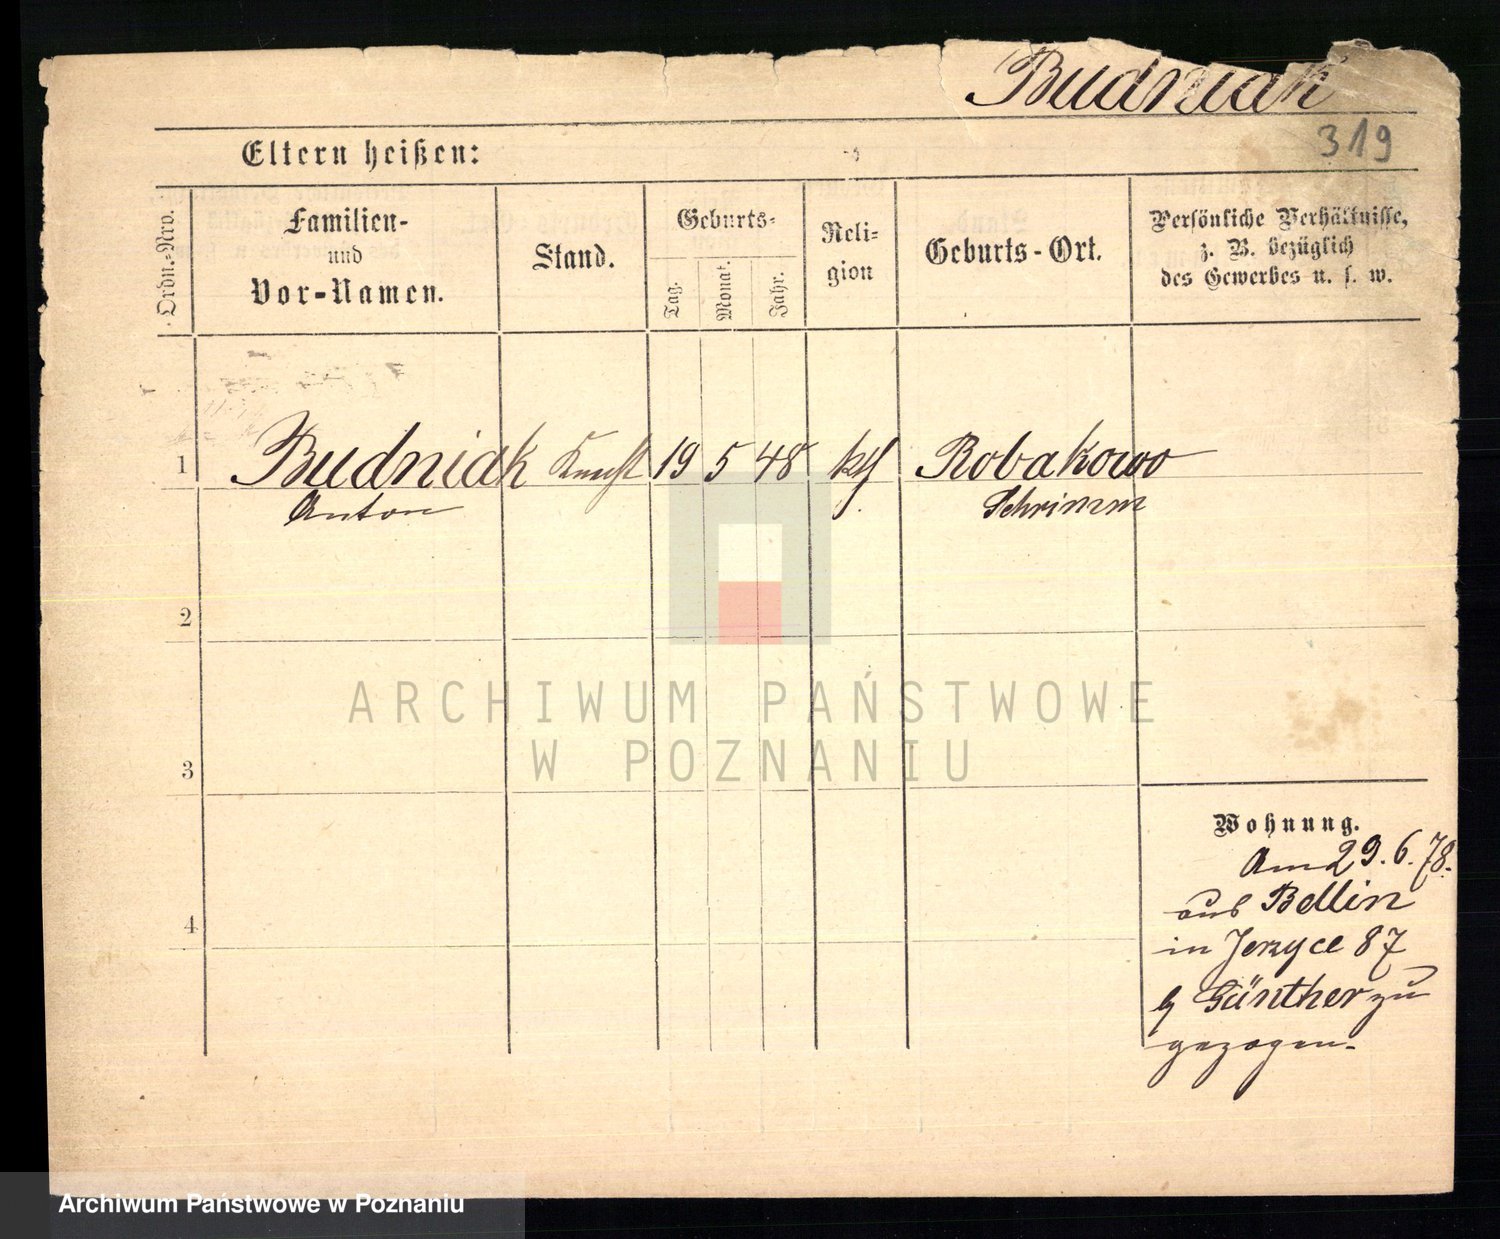 Budniak
319
Eltern heißen:
Ordn.-Nro.
Familien-
und
Vor-Namen.
Stand.
Geburts-
Tag.
Monat.
Jahr.
Reli-
gion
Geburts-Ort.
Persönliche Verhältnisse,
z. B. bezüglich
des Gewerbes u. s. w.
1 Budniak Knecht 19 5 48 kth. Robakowo
Anton Schrimm
2
3
4
Wohnung.
Am 29.6.78.
aus Bellin
in Jerzyce 87
b Günther zu
gezogen.
ARCHIWUM PAŃSTWOWE
W POZNANIU
Archiwum Państwowe w Poznaniu